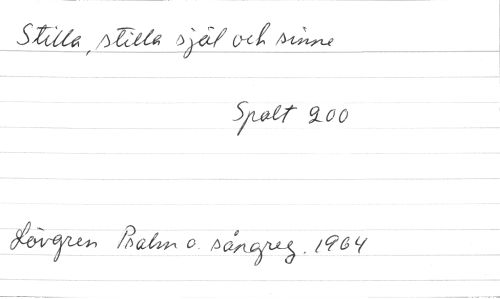 Stilla, stilla själ och sinne
Spalt 200
Lövgren Psalm o. sångreg. 1964